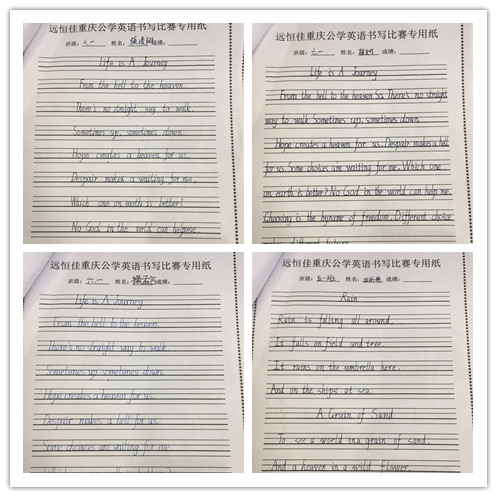 远恒佳重庆公学英语书写比赛专用纸
班级: 六.一 姓名: 成绩:
Life is A Journey
From the hell to the heaven.
There's no straight way to walk.
Sometimes up, sometimes down.
Hope creates a heaven for us.
Despair makes a waiting for me.
Which one on earth is better?
No God in the world can help me.
远恒佳重庆公学英语书写比赛专用纸
班级: 六.一 姓名: 成绩:
Life is A Journey
From the hell to the heaven So. There's no straight
way to walk. Sometimes up, sometimes down.
Hope creates a heaven for us. Despair makes a hell
for us. Some choices are waiting for me. Which one
on earth is better? No God in the world can help me.
Choosing is the byname of freedom. Different choice
远恒佳重庆公学英语书写比赛专用纸
班级: 六.一 姓名: 成绩:
Life is A Journey
From the hell to the heaven.
There's no straight way to walk.
Sometimes up, sometimes down.
Hope creates a heaven for us.
Despair makes a hell for us.
Some choices are waiting for me.
远恒佳重庆公学英语书写比赛专用纸
班级: 五一班 姓名: 成绩:
Rain
Rain is falling all around.
It falls on field and tree.
It rains on the umbrella here.
And on the ships at sea.
A Grain of Sand
To see a world in a grain of sand.
And a heaven in a wild flower.